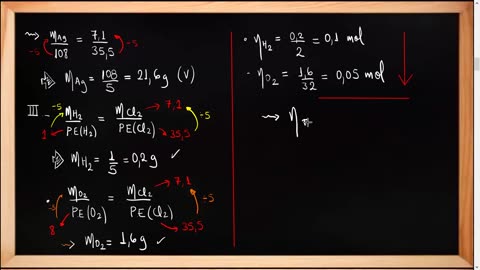 ⇝ m_Ag/108 = 7,1/35,5 ÷5 ÷5
⇒ m_Ag = 108/5 = 21,6g (V)
III - m_H2/PE(H2) = m_Cl2/PE(Cl2) ÷5 1 7,1 35,5 ÷5
⇒ m_H2 = 1/5 = 0,2g ✓
• m_O2/PE(O2) = m_Cl2/PE(Cl2) ÷5 8 7,1 35,5 ÷5
⇝ m_O2 = 1,6g ✓
• η_H2 = 0,2/2 = 0,1 mol
• η_O2 = 1,6/32 = 0,05 mol
⇝ η